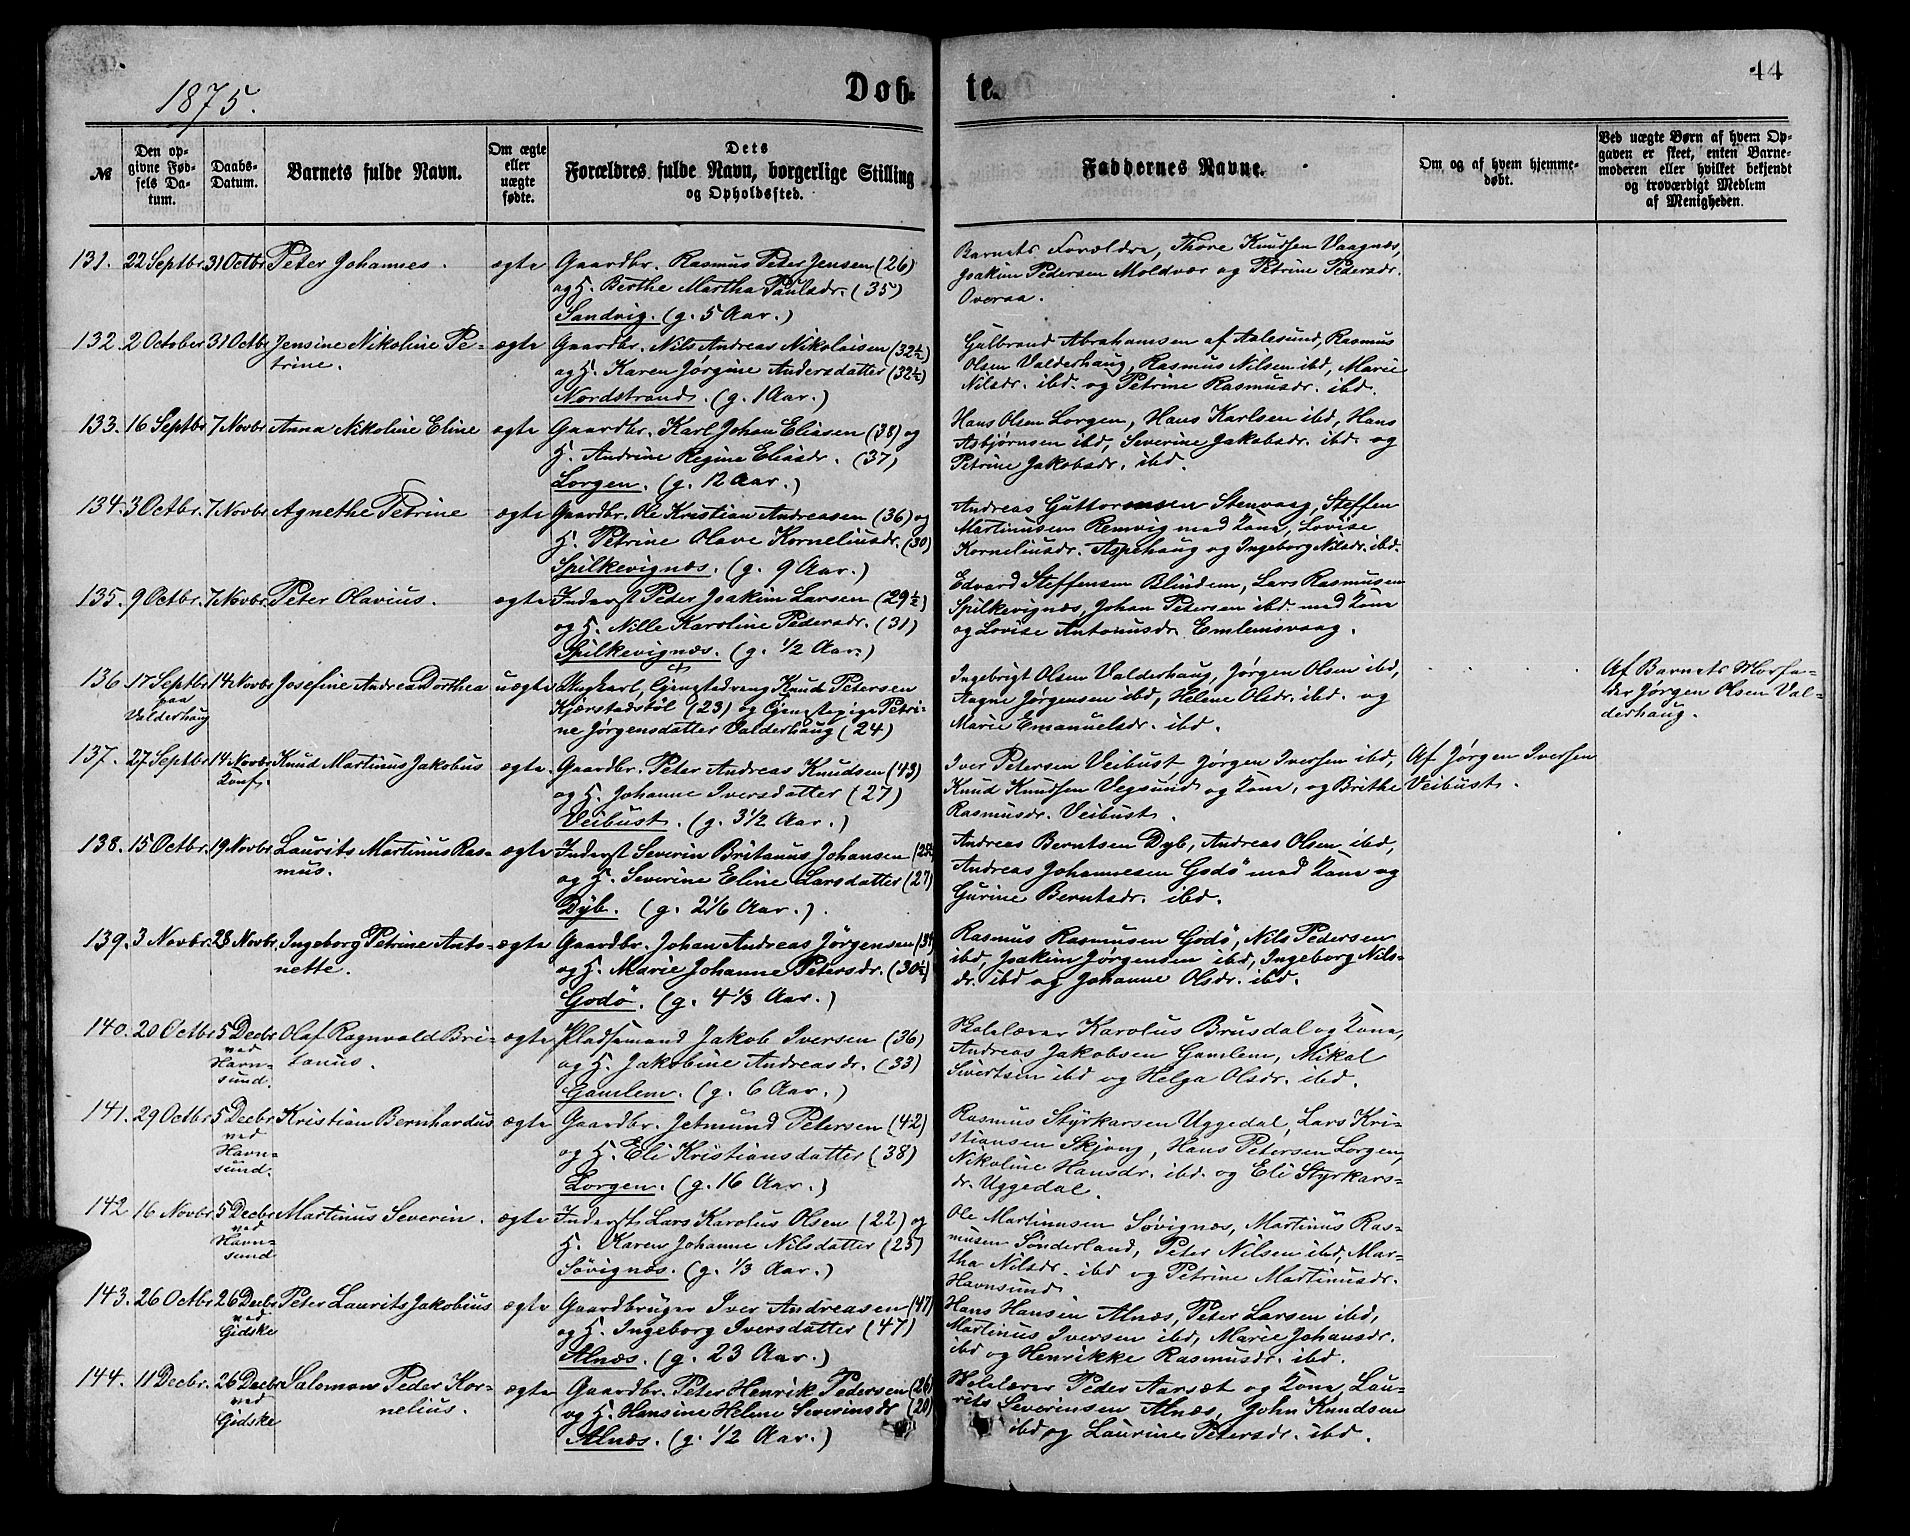 1875.
Døb- te.
44
№
Den opgivne Fødsels Datum.
Daabs-Datum.
Barnets fulde Navn.
Om ægte eller uægte fødte.
Dets Forældres fulde Navn, borgerlige Stilling og Opholdssted.
Faddernes Navne.
Om og af hvem hjemmedøbt.
Ved uægte Børn af hvem Opgaven er skeet, enten Barnemoderen eller hvilket bekjendt og troværdigt Medlem af Menigheden.
131. 22 Septbr 31 Octbr Peter Johannes. ægte Gaardbr. Rasmus Peter Jensen (26)
og H. Berthe Martha Paulsdr. (35)
Sandvig. (g. 5 Aar.)
Barnets Forældre, Thore Knudsen Vaagnæs,
Joakim Pedersen Moldvær og Petrine Pedersdr.
Overaa.
132. 2 October 31 Octbr Jensine Nikoline Pe- ægte Gaardbr. Nils Andreas Nikolaisen (32½)
trine. og H. Karen Jørgine Andersdatter (32½)
Nordstrand. (g. 1 Aar.)
Gulbrand Abrahamsen af Aalesund, Rasmus
Olsen Valderhaug, Rasmus Nilsen ibd, Marie
Nilsdr. ibd. og Petrine Rasmusdr. ibd.
133. 16 Septbr 7 Novbr Anna Nikoline Eline ægte Gaardbr. Karl Johan Eliasen (38) og
H. Andrine Regine Eliasdr. (37)
Lorgen. (g. 12 Aar.)
Hans Olsen Lorgen, Hans Karlsen ibd, Hans
Asbjørnsen ibd, Severine Jakobsdr. ibd. og
Petrine Jakobsdr. ibd.
134. 3 Octbr. 7 Novbr. Agnethe Petrine ægte Gaardbr. Ole Kristian Andreasen (36) og
H. Petrine Olave Korneliusdr. (30)
Spilkevignæs. (g. 9 Aar.)
Andreas Guttormsen Stenvaag, Steffen
Martinusen Remvig med Kone, Lovise
Korneliusdr. Aspehaug og Ingeborg Nilsdr. ibd.
135. 9 Octbr. 7 Novbr. Peter Olavius. ægte Inderst Peder Joakim Larsen (29½)
og H. Nille Karoline Pedersdr. (31)
Spilkevignæs. (g. ½ Aar.)
Edvard Steffensen Blindem, Lars Rasmusen
Spilkevignæs, Johan Petersen ibd med Kone
og Lovise Antonusdr. Emlemsvaag.
136 17 Septbr 14 Novbr Josefine Andrea Dorthea uægte Ungkarl, Tjenstedreng Knud Petersen
paa Valderhaug
Kjærstadsvol (23) og Tjenstepige Petri-
ne Jørgensdatter Valderhaug (24)
Ingebrigt Olsen Valderhaug, Jørgen Olsen ibd,
Aagne Jørgensen ibd, Heline Olsdr. ibd. og
Marie Emanuelsdr. ibd.
Af Barnets Morfa-
der Jørgen Olsen Val-
derhaug.
137. 27 Septbr 14 Novbr Knud Martinus Jakobus ægte. Gaardbr. Peter Andreas Knudsen (43)
Konf. og H. Johanne Iversdatter (27)
Veibust. (g. 3½ Aar.)
Iver Petersen Veibust, Jørgen Iversen ibd,
Knud Knudsen Vegsund og Kone, og Brithe
Rasmusdr. Veibust.
Af Jørgen Iversen
Veibust.
138. 15 Octbr. 19 Novbr. Laurits Martinus Ras- ægte Inderst Severin Britanus Johansen
mus. og H. Severine Eline Larsdatter (27)
Dyb. (g. 2 1/6 Aar.).
Andreas Berntsen Dyb, Andreas Olsen ibd,
Andreas Johannesen Godö med Kone og
Gurine Berntsdr. ibd.
139. 3 Novbr. 28 Novbr. Ingeborg Petrine Anto- ægte Gaardbr. Johan Andreas Jørgensen
nette. og H. Marie Johanne Petersdr. (30½)
Godö. (g. 4⅓ Aar.)
Rasmus Rasmusen Godö, Nils Pedersen
ibd, Joakim Jørgensen ibd, Ingeborg Nils-
dr. ibd og Johanne Olsdr. ibd.
140. 20 Octbr 5 Decbr Olaf Ragnvald Bri- ægte Pladsemand Jakob Iversen (36)
ved Havn-
sund. tanus. og H. Jakobine Andreasdr. (33)
Gamlem. (g. 6 Aar.)
Skolelærer Karolus Brusdal og Kone,
Andreas Jakobsen Gamlem, Mikal
Sivertsen ibd og Helga Olsdr. ibd.
141. 29 Octbr 5 Decbr Kristian Bernhardus ægte Gaardbr. Jetmund Petersen (42)
ved Havn-
sund. og H. Eli Kristiansdatter (38)
Lorgen. (g. 16 Aar.)
Rasmus Styrkarsen Uggedal, Lars Kri-
stiansen Skjong, Hans Petersen Lorgen,
Nikoline Hansdr. ibd. og Eli Styrkars-
dr. Uggedal.
142 16 Novbr. 5 Decbr Martinus Severin. ægte Inderst Lars Karolus Olsen (22) og
ved Havn-
sund H. Karen Johanne Nilsdatter (25)
Sövignæs. (g. ⅓ Aar.)
Ole Martinusen Søvignæs, Martinus Ras-
musen Sønderland, Peter Nilsen ibd, Mar-
tha Nilsdr. ibd og Petrine Martinusdr.
Havnsund
143. 26 Octbr 26 Decbr Peter Laurits Jakobius ægte Gaardbruger Iver Andreasen (47)
ved
Gidske og H. Ingeborg Iversdatter (47)
Alnæs. (g. 23 Aar.)
Hans Hansen Alnæs, Peter Larsen ibd,
Martinus Iversen ibd, Marie Johansdr.
ibd og Henrikke Rasmusdr. ibd.
144. 11 Decbr. 26 Decbr Salomon Peder Kor- ægte Gaardbr. Peter Henrik Pedersen (26)
ved
Gidske nelius. og H. Hansine Helene Severinsdr (20)
Alnæs. (g. ½ Aar.)
Skolelærer Peder Aarsæt og Kone, Lau-
rits Severinsen Alnæs, John Knudsen
ibd og Laurine Petersdr. ibd.